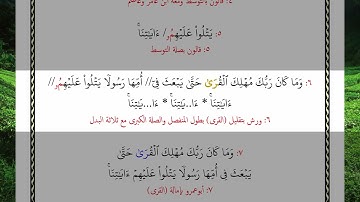 ٤: قالون بالتوسط ومعه ابن عامر وعاصم
٥: يَتْلُواْ عَلَيْهِمُۥٓ/ ءَايَٰتِنَاۚ
٥: قالون بصلة التوسط
٦: وَمَا كَانَ رَبُّكَ مُهْلِكَ اَلْقُرَىٰ حَتَّىٰ يَبْعَثَ فِىٓ// أُمِّهَا رَسُولًا يَتْلُواْ عَلَيْهِمُۥٓ//
ءَايَٰتِنَاۚ * ءَا..يَٰتِنَاۚ * ءَا...يَٰتِنَاۚ
٦: ورش بتقليل (القرى) بطول المنفصل والصلة الكبرى مع ثلاثة البدل
٧: وَمَا كَانَ رَبُّكَ مُهْلِكَ اَلْقُرَىٰ حَتَّىٰ
يَبْعَثَ فِى أُمِّهَا رَسُولًا يَتْلُواْ عَلَيْهِمْ ءَايَٰتِنَاۚ
٧: أبوعمرو بإمالة (القرى)